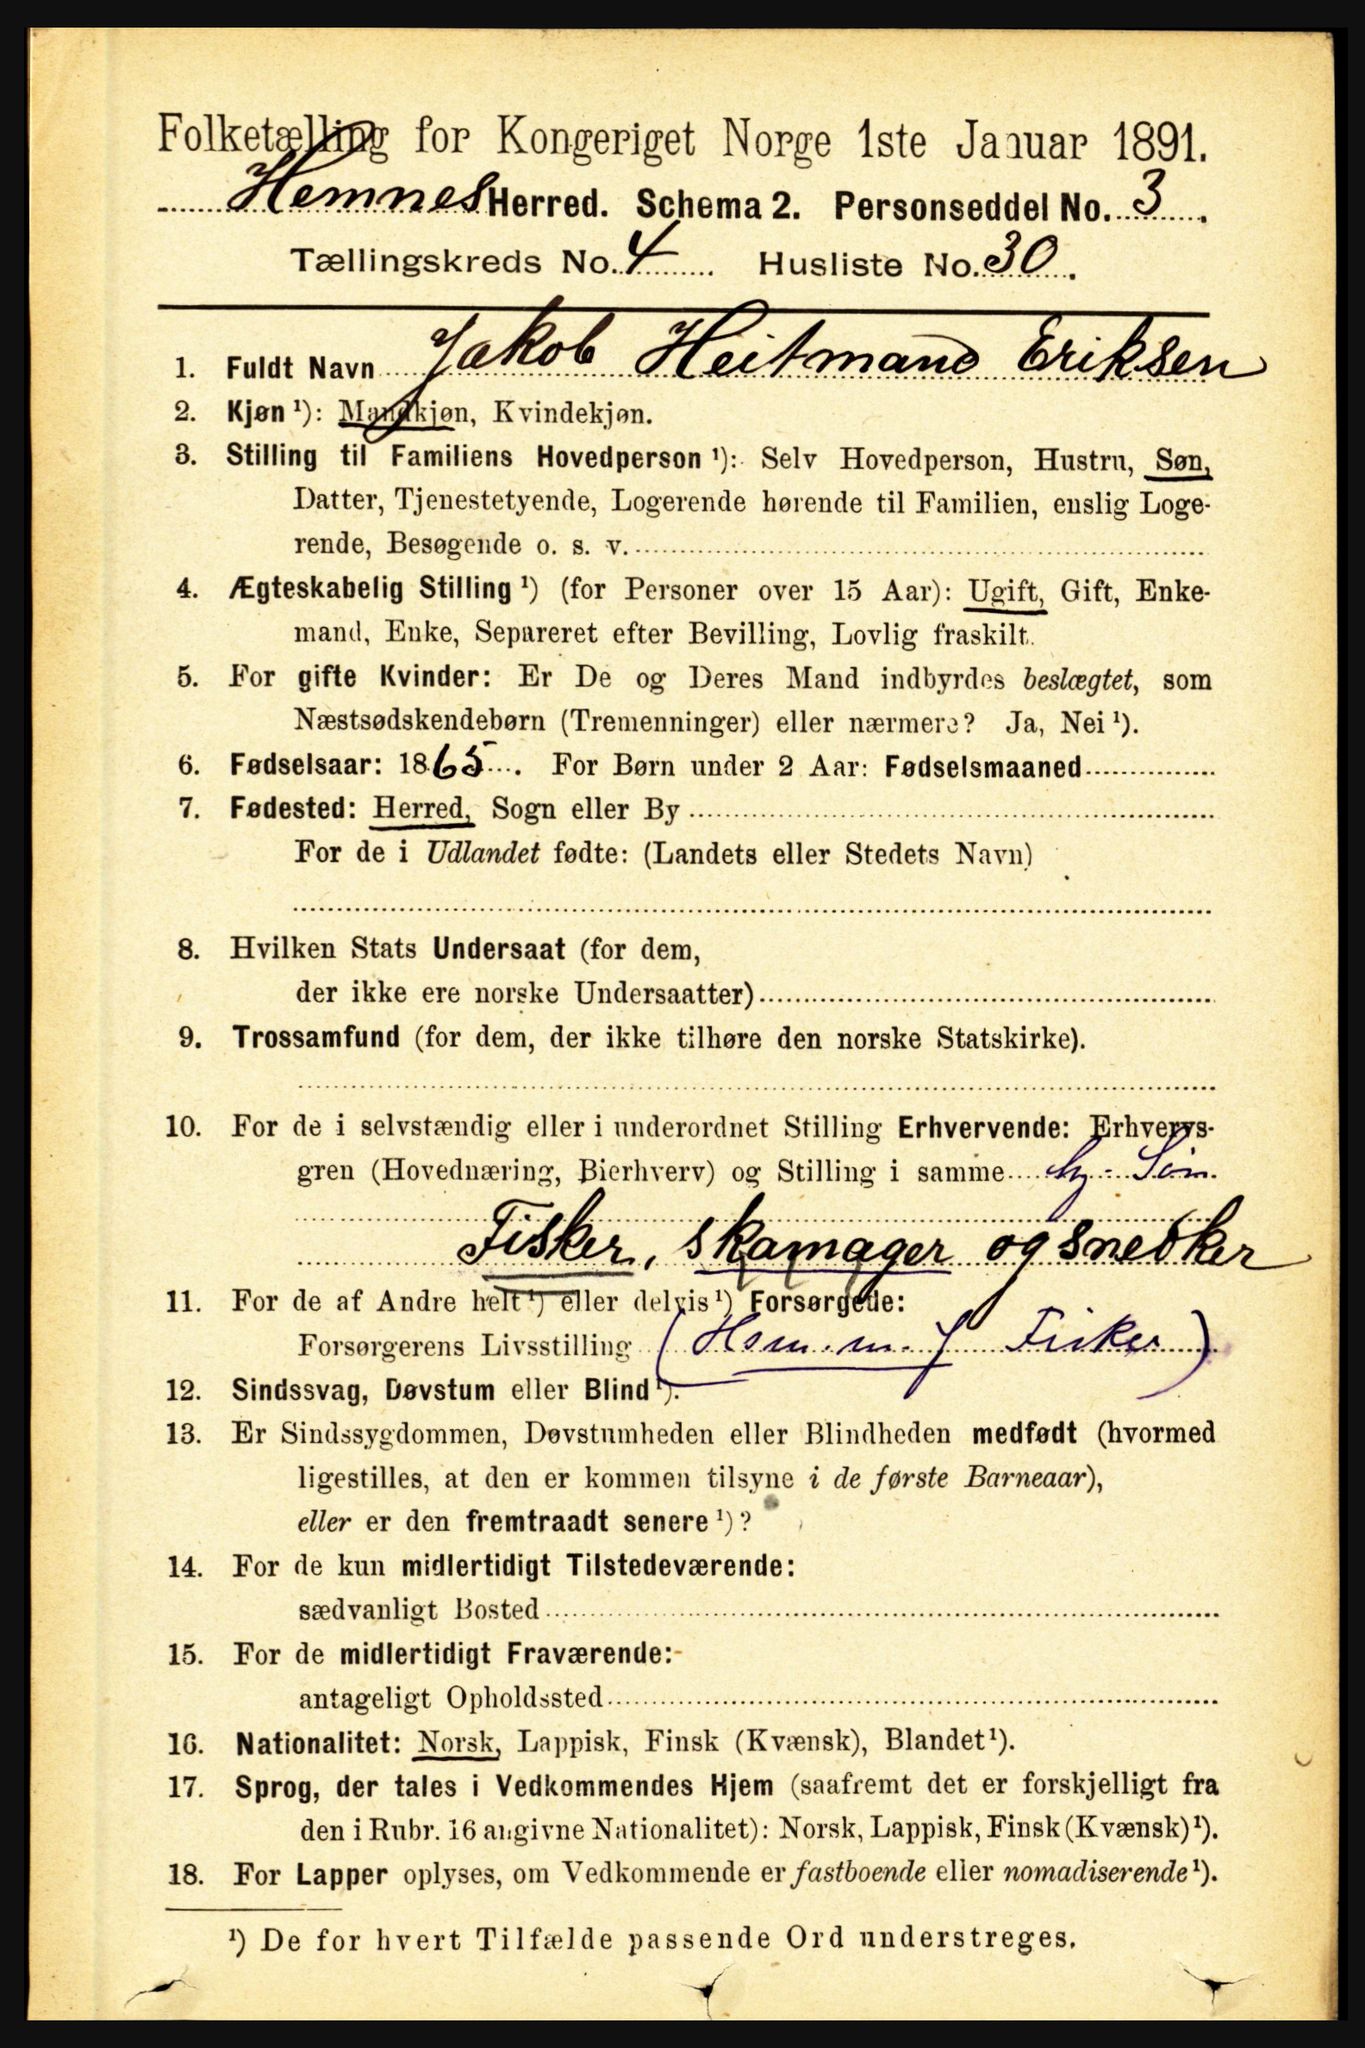 Folketælling for Kongeriget Norge 1ste Januar 1891.
Hemnes Herred. Schema 2. Personseddel No. 3.
Tællingskreds No. 4 Husliste No. 30.
1. Fuldt Navn Jakob Heitmand Eriksen
2. Kjøn ¹): Mandkjøn, Kvindekjøn.
3. Stilling til Familiens Hovedperson ¹): Selv Hovedperson, Hustru, Søn,
Datter, Tjenestetyende, Logerende hørende til Familien, enslig Loge-
rende, Besøgende o. s. v.
4. Ægteskabelig Stilling ¹) (for Personer over 15 Aar): Ugift, Gift, Enke-
mand, Enke, Separeret efter Bevilling, Lovlig fraskilt.
5. For gifte Kvinder: Er De og Deres Mand indbyrdes beslægtet, som
Næstsødskendebørn (Tremenninger) eller nærmere? Ja, Nei ¹).
6. Fødselsaar: 1865. For Børn under 2 Aar: Fødselsmaaned
7. Fødested: Herred, Sogn eller By
For de i Udlandet fødte: (Landets eller Stedets Navn)
8. Hvilken Stats Undersaat (for dem,
der ikke ere norske Undersaatter)
9. Trossamfund (for dem, der ikke tilhøre den norske Statskirke).
10. For de i selvstændig eller i underordnet Stilling Erhvervende: Erhvervs-
gren (Hovednæring, Bierhverv) og Stilling i samme hj. Søn.
Fisker, skomager og snedker
11. For de af Andre helt ¹) eller delvis ¹) Forsørgede:
Forsørgerens Livsstilling (Hsm. m. J Fisker)
12. Sindssvag, Døvstum eller Blind ¹).
13. Er Sindssygdommen, Døvstumheden eller Blindheden medfødt (hvormed
ligestilles, at den er kommen tilsyne i de første Barneaar),
eller er den fremtraadt senere ¹)?
14. For de kun midlertidigt Tilstedeværende:
sædvanligt Bosted
15. For de midlertidigt Fraværende:
antageligt Opholdssted
16. Nationalitet: Norsk, Lappisk, Finsk (Kvænsk), Blandet ¹).
17. Sprog, der tales i Vedkommendes Hjem (saafremt det er forskjelligt fra
den i Rubr. 16 angivne Nationalitet): Norsk, Lappisk, Finsk (Kvænsk) ¹).
18. For Lapper oplyses, om Vedkommende er fastboende eller nomadiserende ¹).
¹) De for hvert Tilfælde passende Ord understreges.